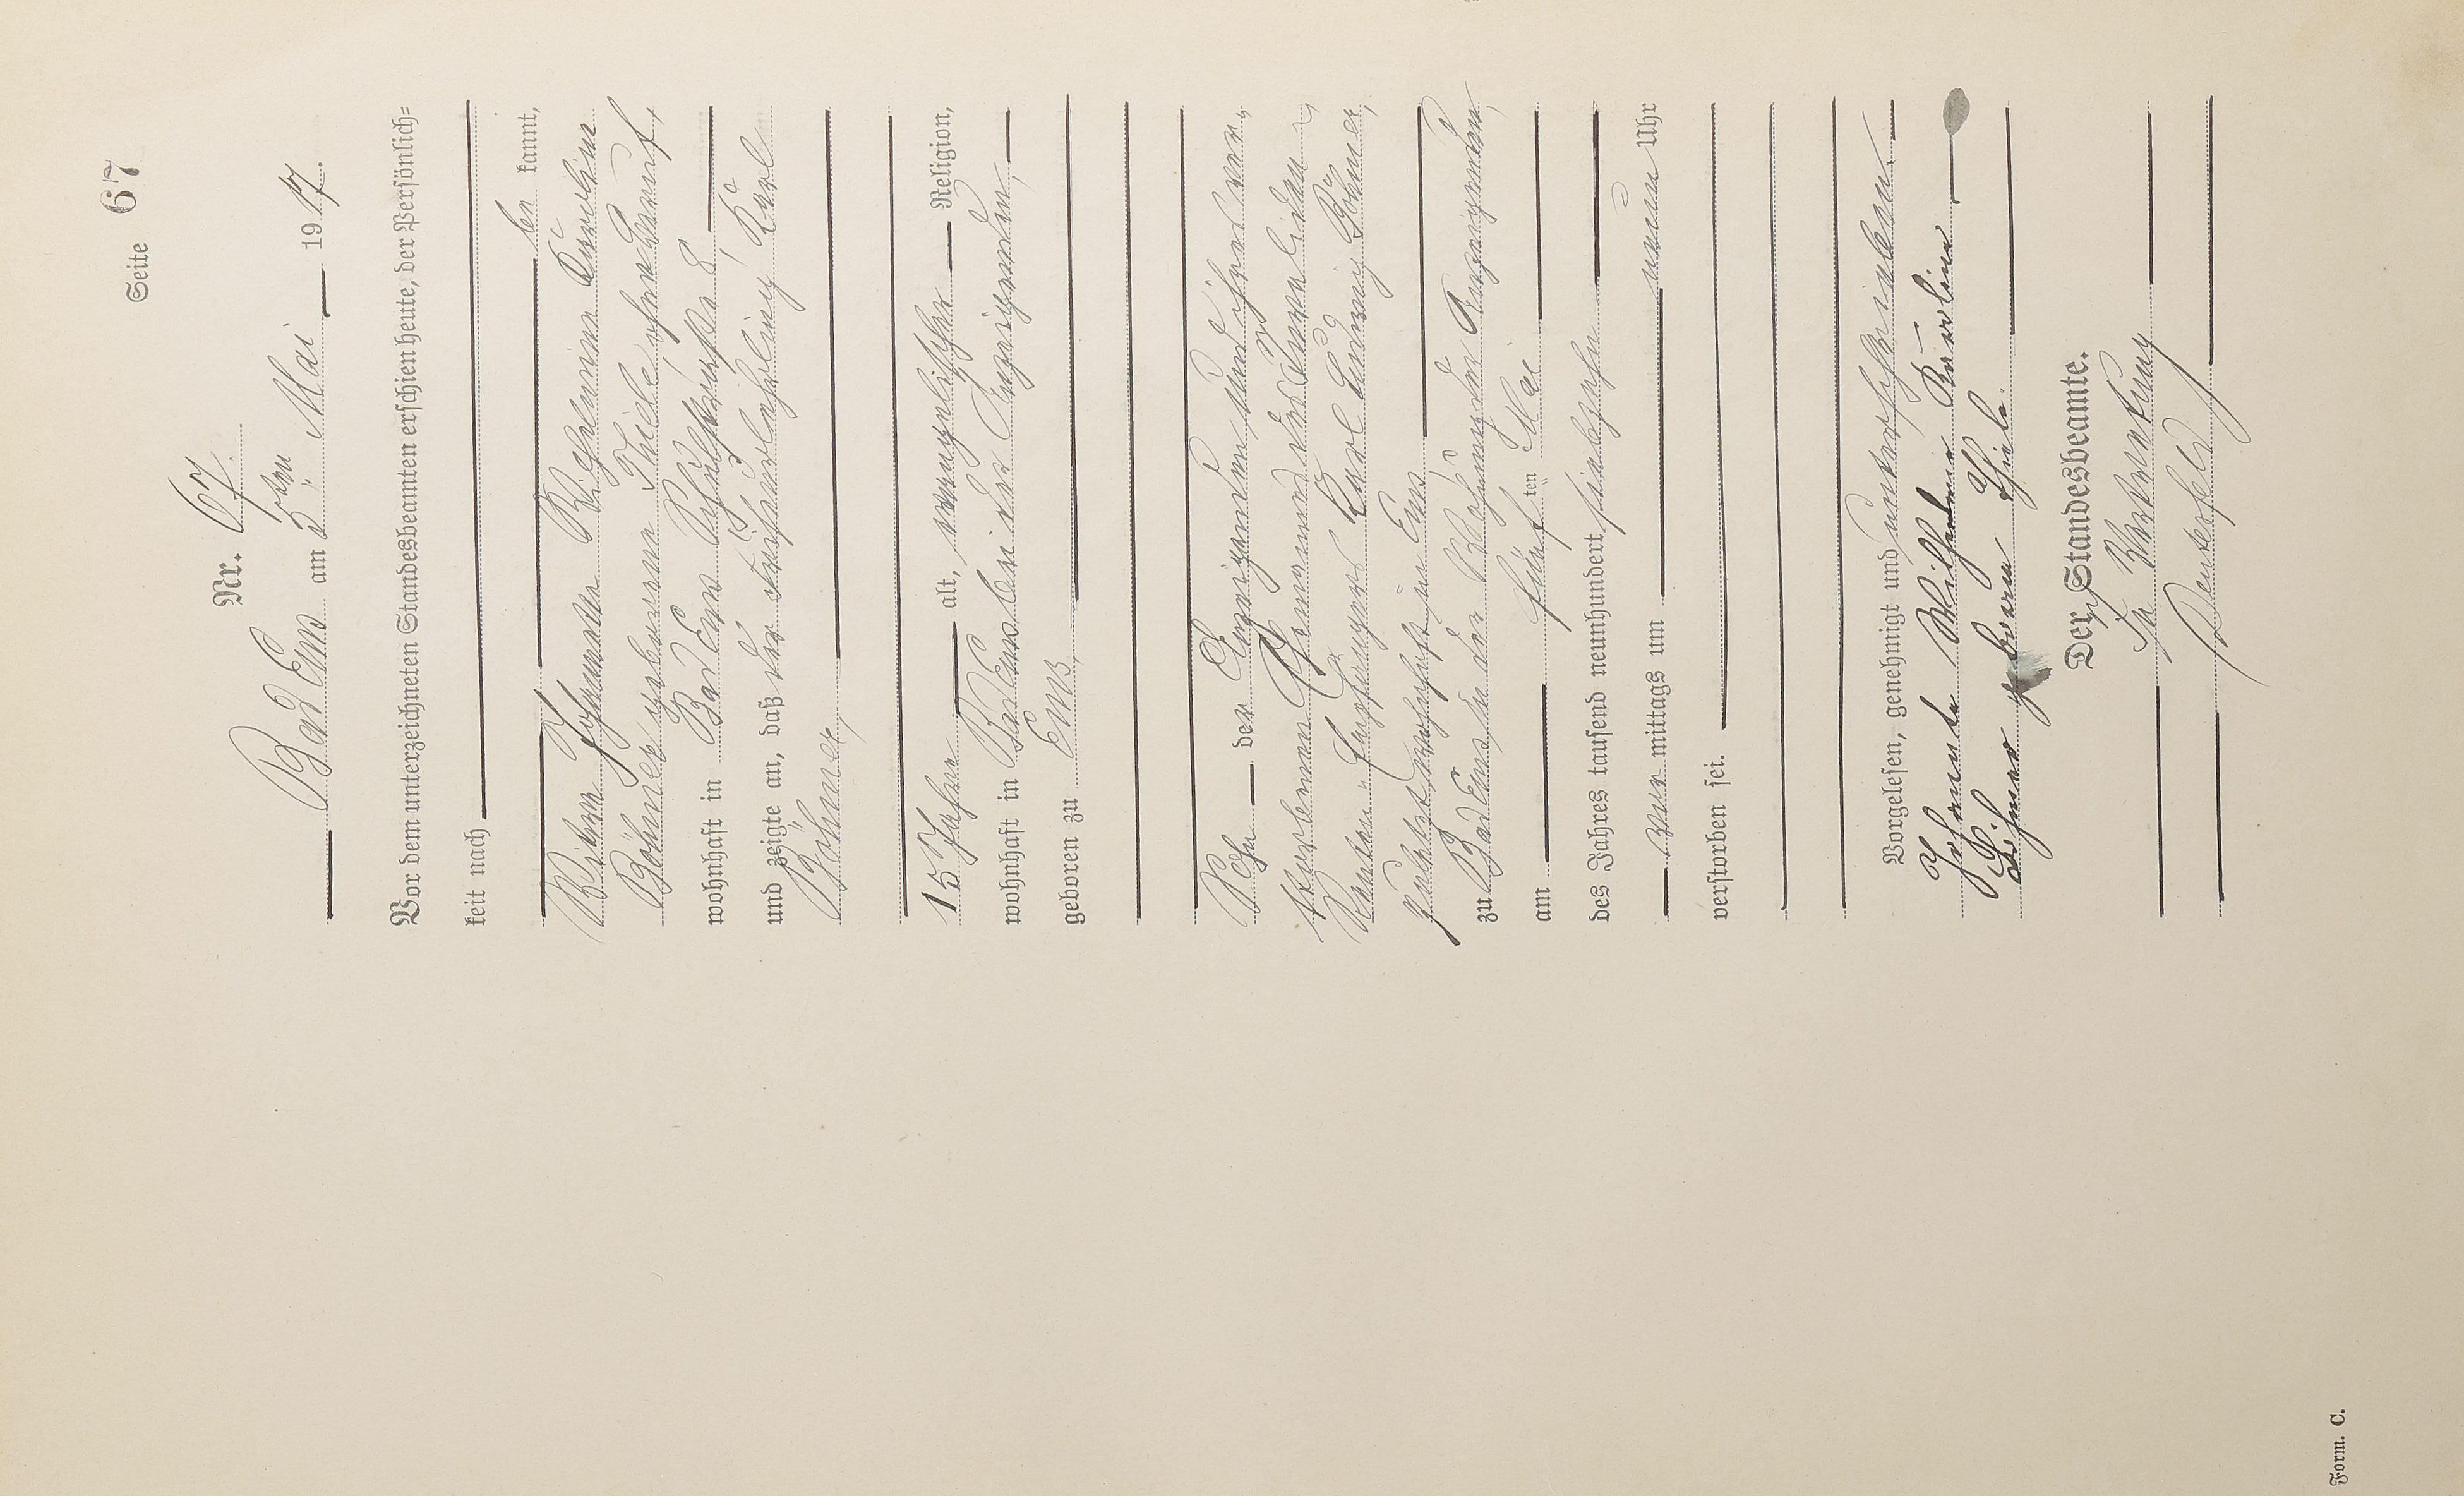 Seite 67
Nr. 67.
Bad Ems am 5ten Mai 1917.
Vor dem unterzeichneten Standesbeamten erschien heute, der Persönlich=
keit nach
be kannt,
Witwe Johannette Wilhelmine Karoline
Böhmer geborene Thiele ohne Beruf,
wohnhaft in Bad Ems Schulstraße 8
und zeigte an, daß der Karl
Böhmer,
15 Jahre alt, evangelischer Religion,
wohnhaft in Bad Ems bei der Anzeigenden,
geboren zu Ems,
Sohn der Anzeigenden und ihres ver=
storbenen Ehemannes des Invaliden
Carl Ludwig Böhmer,
zuletzt wohnhaft in Ems
zu Bad Ems in der Wohnung der Anzeigenden,
am fünften Mai
des Jahres tausend neunhundert siebzehn
vor mittags um neun Uhr
verstorben sei.
Vorgelesen, genehmigt und unterschrieben.
Johannette Wilhelmine Karoline
Böhmer geborene Thiele.
Der Standesbeamte.
In Vertretung
Form. C.